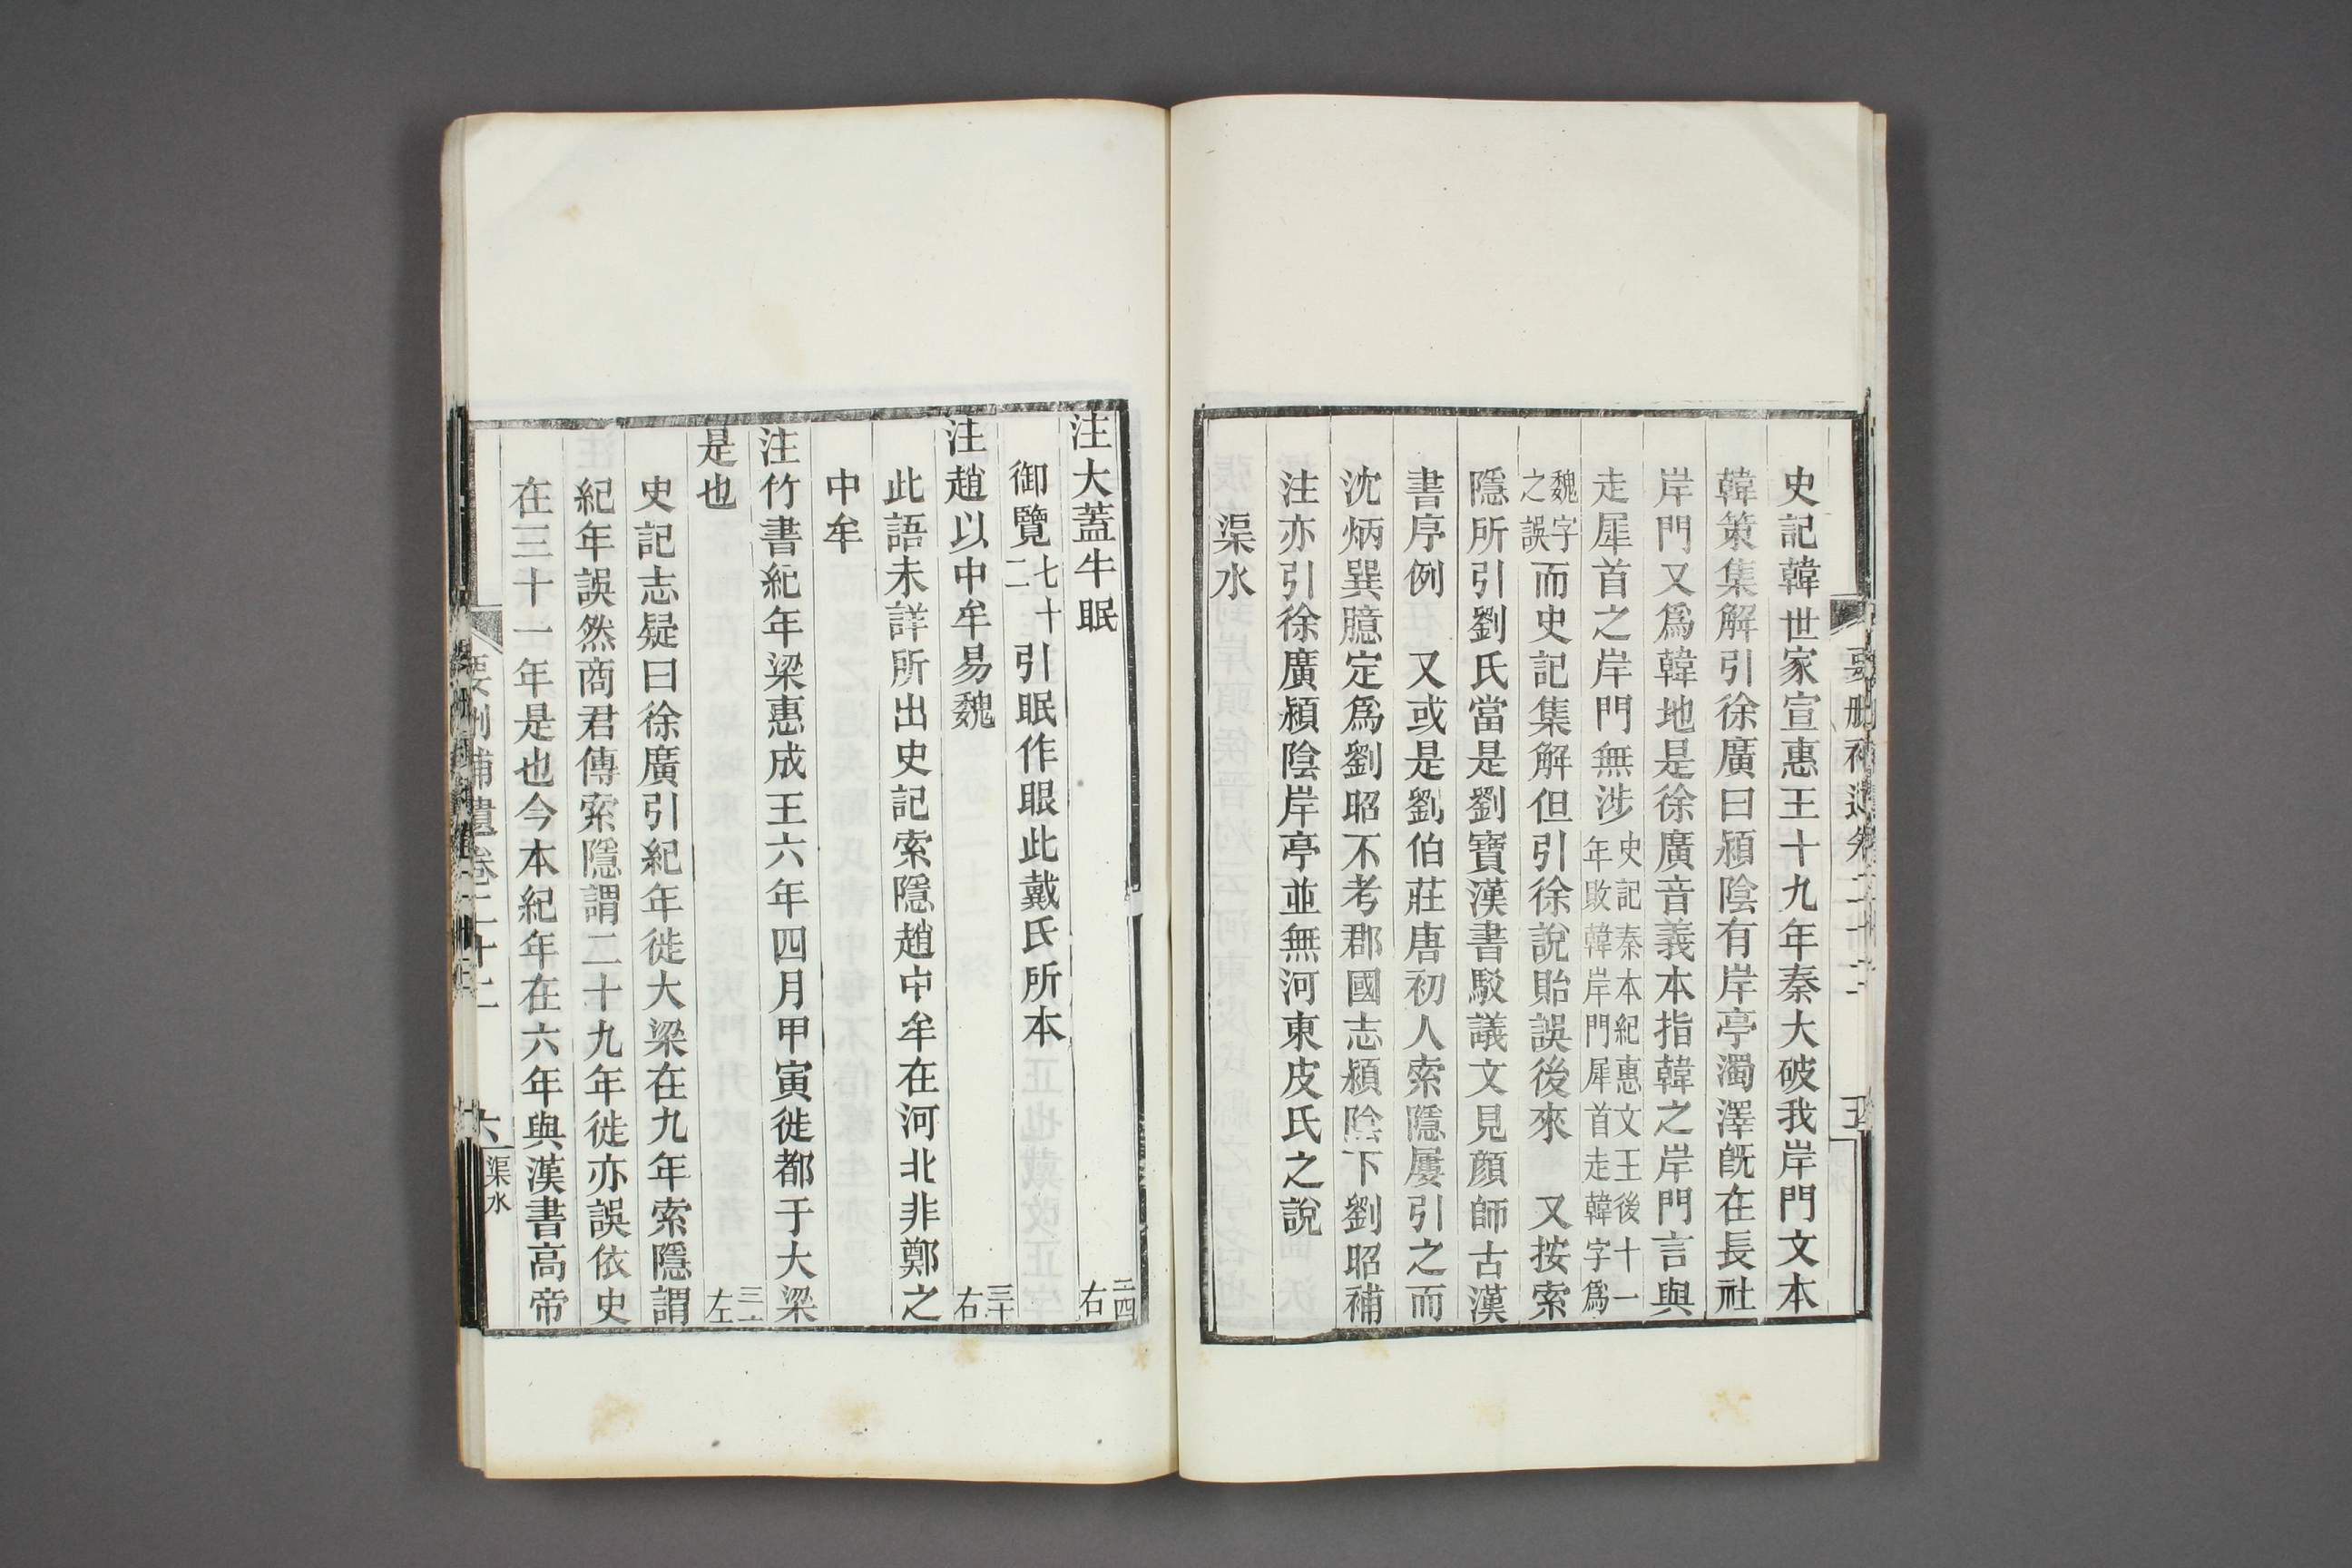 史記韓世家宣惠王十九年秦大破我岸門文本
韓策集解引徐廣曰潁陰有岸亭濁澤旣在長社
岸門又爲韓地是徐廣音義本指韓之岸門言與
走犀首之岸門無涉史記秦本紀惠文王後十一
年敗韓岸門犀首走韓字爲
魏字
之誤而史記集解但引徐說貽誤後來　又按索
隱所引劉氏當是劉寶漢書駁議文見顏師古漢
書序例　又或是劉伯莊唐初人索隱屢引之而
沈炳巽臆定爲劉昭不考郡國志潁陰下劉昭補
注亦引徐廣潁陰岸亭並無河東皮氏之說
渠水
注大蓋牛眠　二四右
御覽七十二引眠作眼此戴氏所本
注趙以中牟易魏　三十右
此語未詳所出史記索隱趙中牟在河北非鄭之
中牟
注竹書紀年梁惠成王六年四月甲寅徙都于大梁
是也　左
史記志疑曰徐廣引紀年徙大梁在九年索隱謂
紀年誤然商君傳索隱謂二十九年徙亦誤依史
在三十一年是也今本紀年在六年與漢書高帝
要刪補遺卷二十二
六
渠水